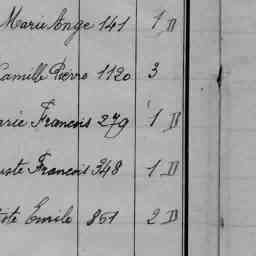 Marie Ange 141 1 D
Camille Pierre 1120 3
arie Francois 279 1 D
uste Francois 348 1 D
iste Emile 861 2 D